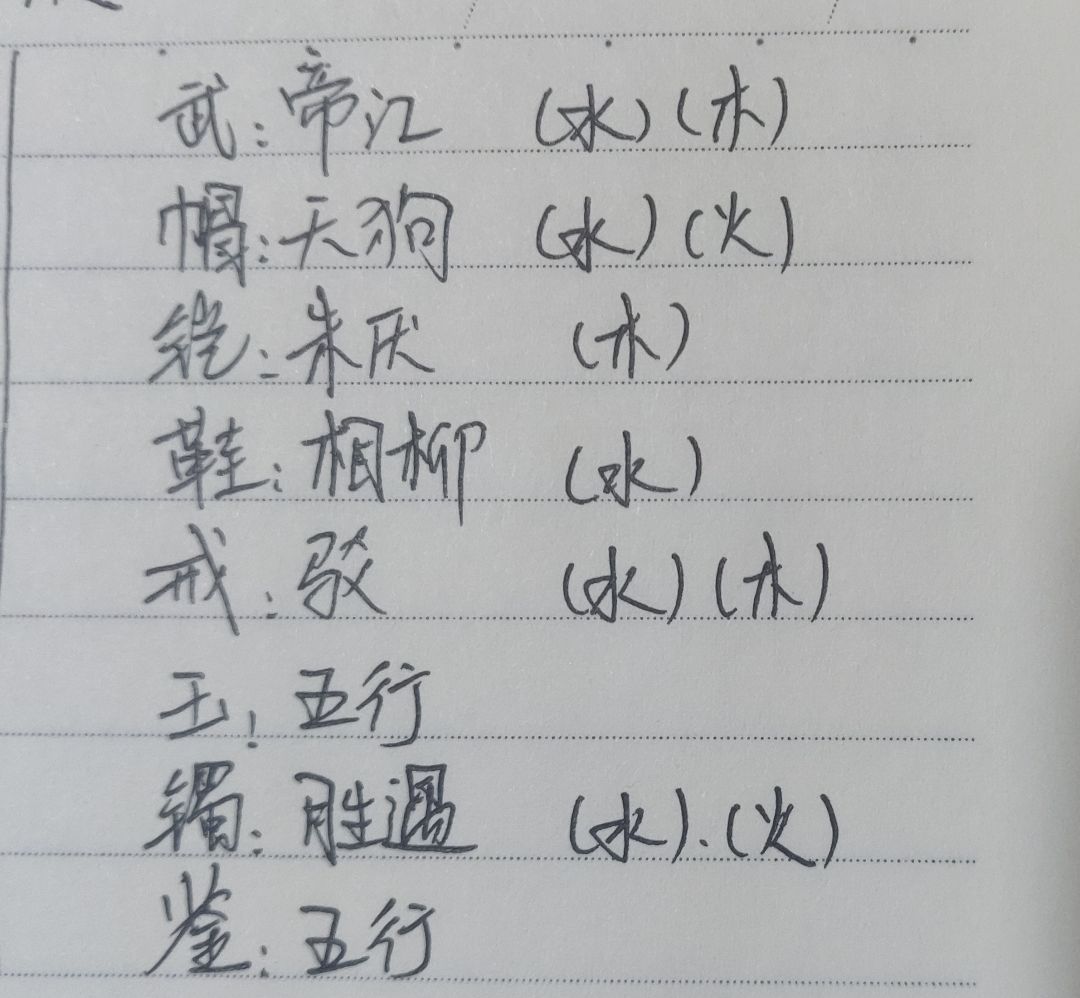 武：帝江 （水）（木）
帽：天狗 （水）（火）
铠：朱厌 （木）
鞋：相柳 （水）
戒：驳 （水）（木）
玉：五行
镯：胜遇 （水）.（火）
鉴：五行